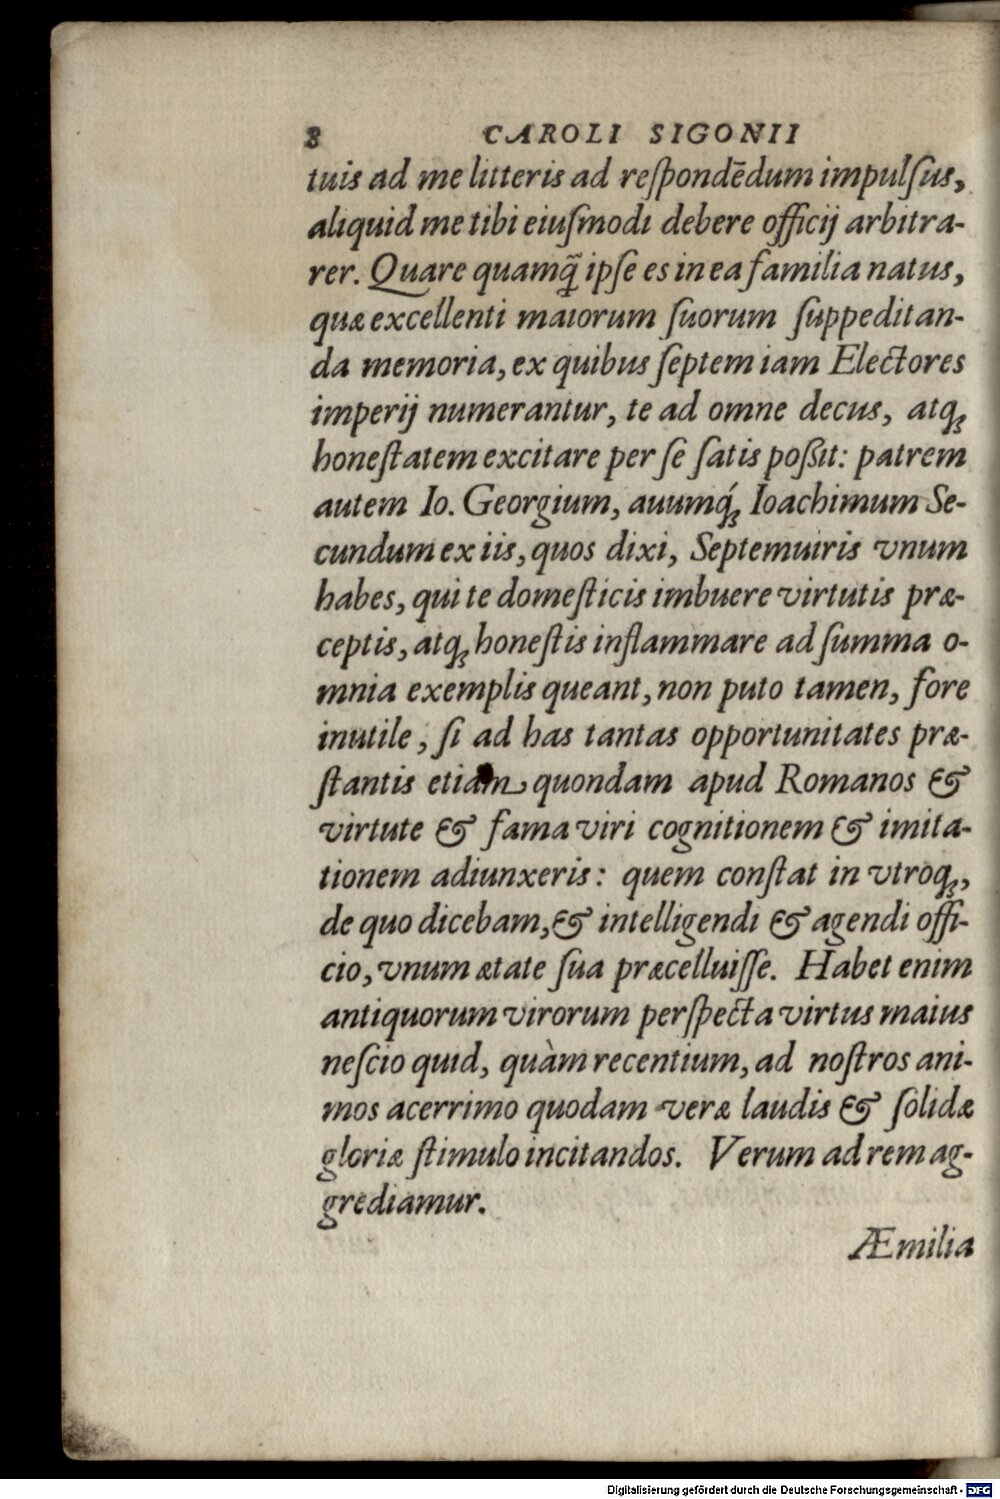 8 CAROLI SIGONII
tuis ad me litteris ad reſpondēdum impulſus,
aliquid me tibi eiuſmodi debere officij arbitra-
rer. Quare quamq̃ ipſe es in ea familia natus,
quæ excellenti maiorum ſuorum ſuppeditan-
da memoria, ex quibus ſeptem iam Electores
imperij numerantur, te ad omne decus, atq;
honeſtatem excitare per ſe ſatis poßit: patrem
autem Io. Georgium, auumq́; Ioachimum Se-
cundum ex iis, quos dixi, Septemuiris vnum
habes, qui te domeſticis imbuere virtutis præ-
ceptis, atq; honeſtis inflammare ad ſumma o-
mnia exemplis queant, non puto tamen, fore
inutile, ſi ad has tantas opportunitates præ-
ſtantis etiam quondam apud Romanos &
virtute & fama viri cognitionem & imita-
tionem adiunxeris: quem conſtat in vtroq;,
de quo dicebam, & intelligendi & agendi offi-
cio, vnum ætate ſua præcelluiſſe. Habet enim
antiquorum virorum perſpecta virtus maius
neſcio quid, quàm recentium, ad noſtros ani-
mos acerrimo quodam veræ laudis & ſolidæ
gloriæ ſtimulo incitandos. Verum ad rem ag-
grediamur.
Æmilia
Digitalisierung gefördert durch die Deutsche Forschungsgemeinschaft - DFG